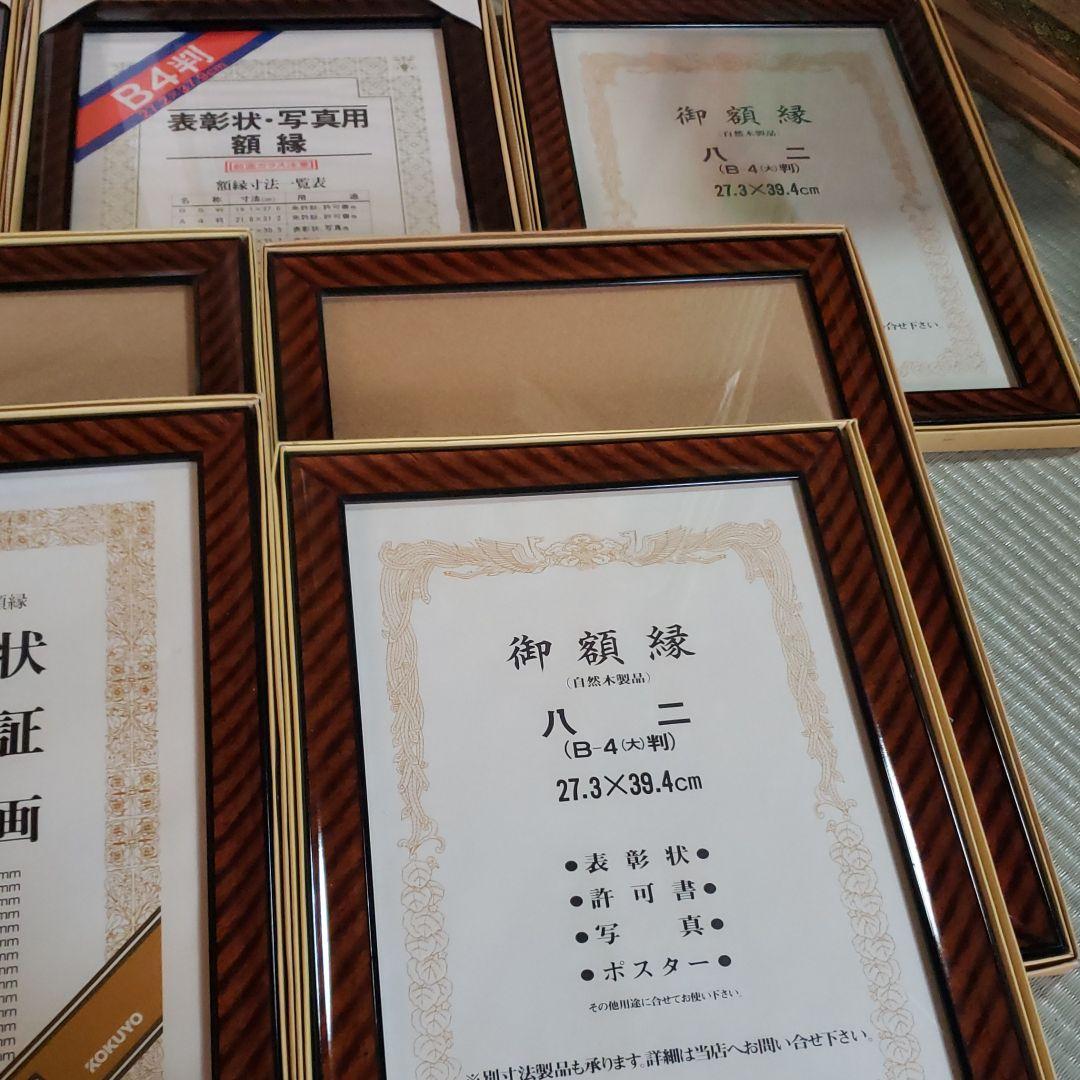 B4判
表彰状・写真用
額縁
額縁寸法一覧表
名 称 寸法(cm) 用 途
御額縁
(自然木製品)
八 二
(B-4(大)判)
27.3×39.4cm
合せ下さい
額縁
状
証
画
mm
mm
mm
mm
mm
mm
mm
mm
mm
mm
mm
mm
mm
mm
KOKUYO
御額縁
(自然木製品)
八 二
(B-4(大)判)
27.3×39.4cm
●表彰状●
●許可書●
●写 真●
●ポスター●
その他用途に合せてお使い下さい。
※別寸法製品も承ります。詳細は当店へお問い合せ下さい。